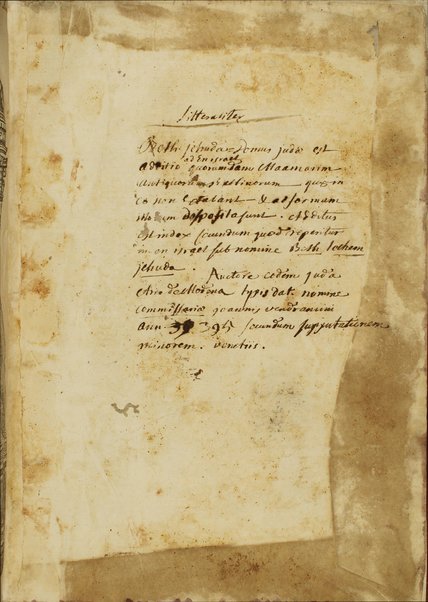 Litteraliter
Beth jehuda domus judæ est
ad En israel
additio quorumdam Maamorim
antiquorum quæ in
eo non extabant & ad formam
disposita sunt. Additus
est index secundum quod reperitur
in on israel sub nomine Beth lechem
jehuda. Auctore eodem juda
Arie de Modena typis data nomine
commissariæ joannis vendramini
ann. 395 secundum supputationem
minorem. venetiis.